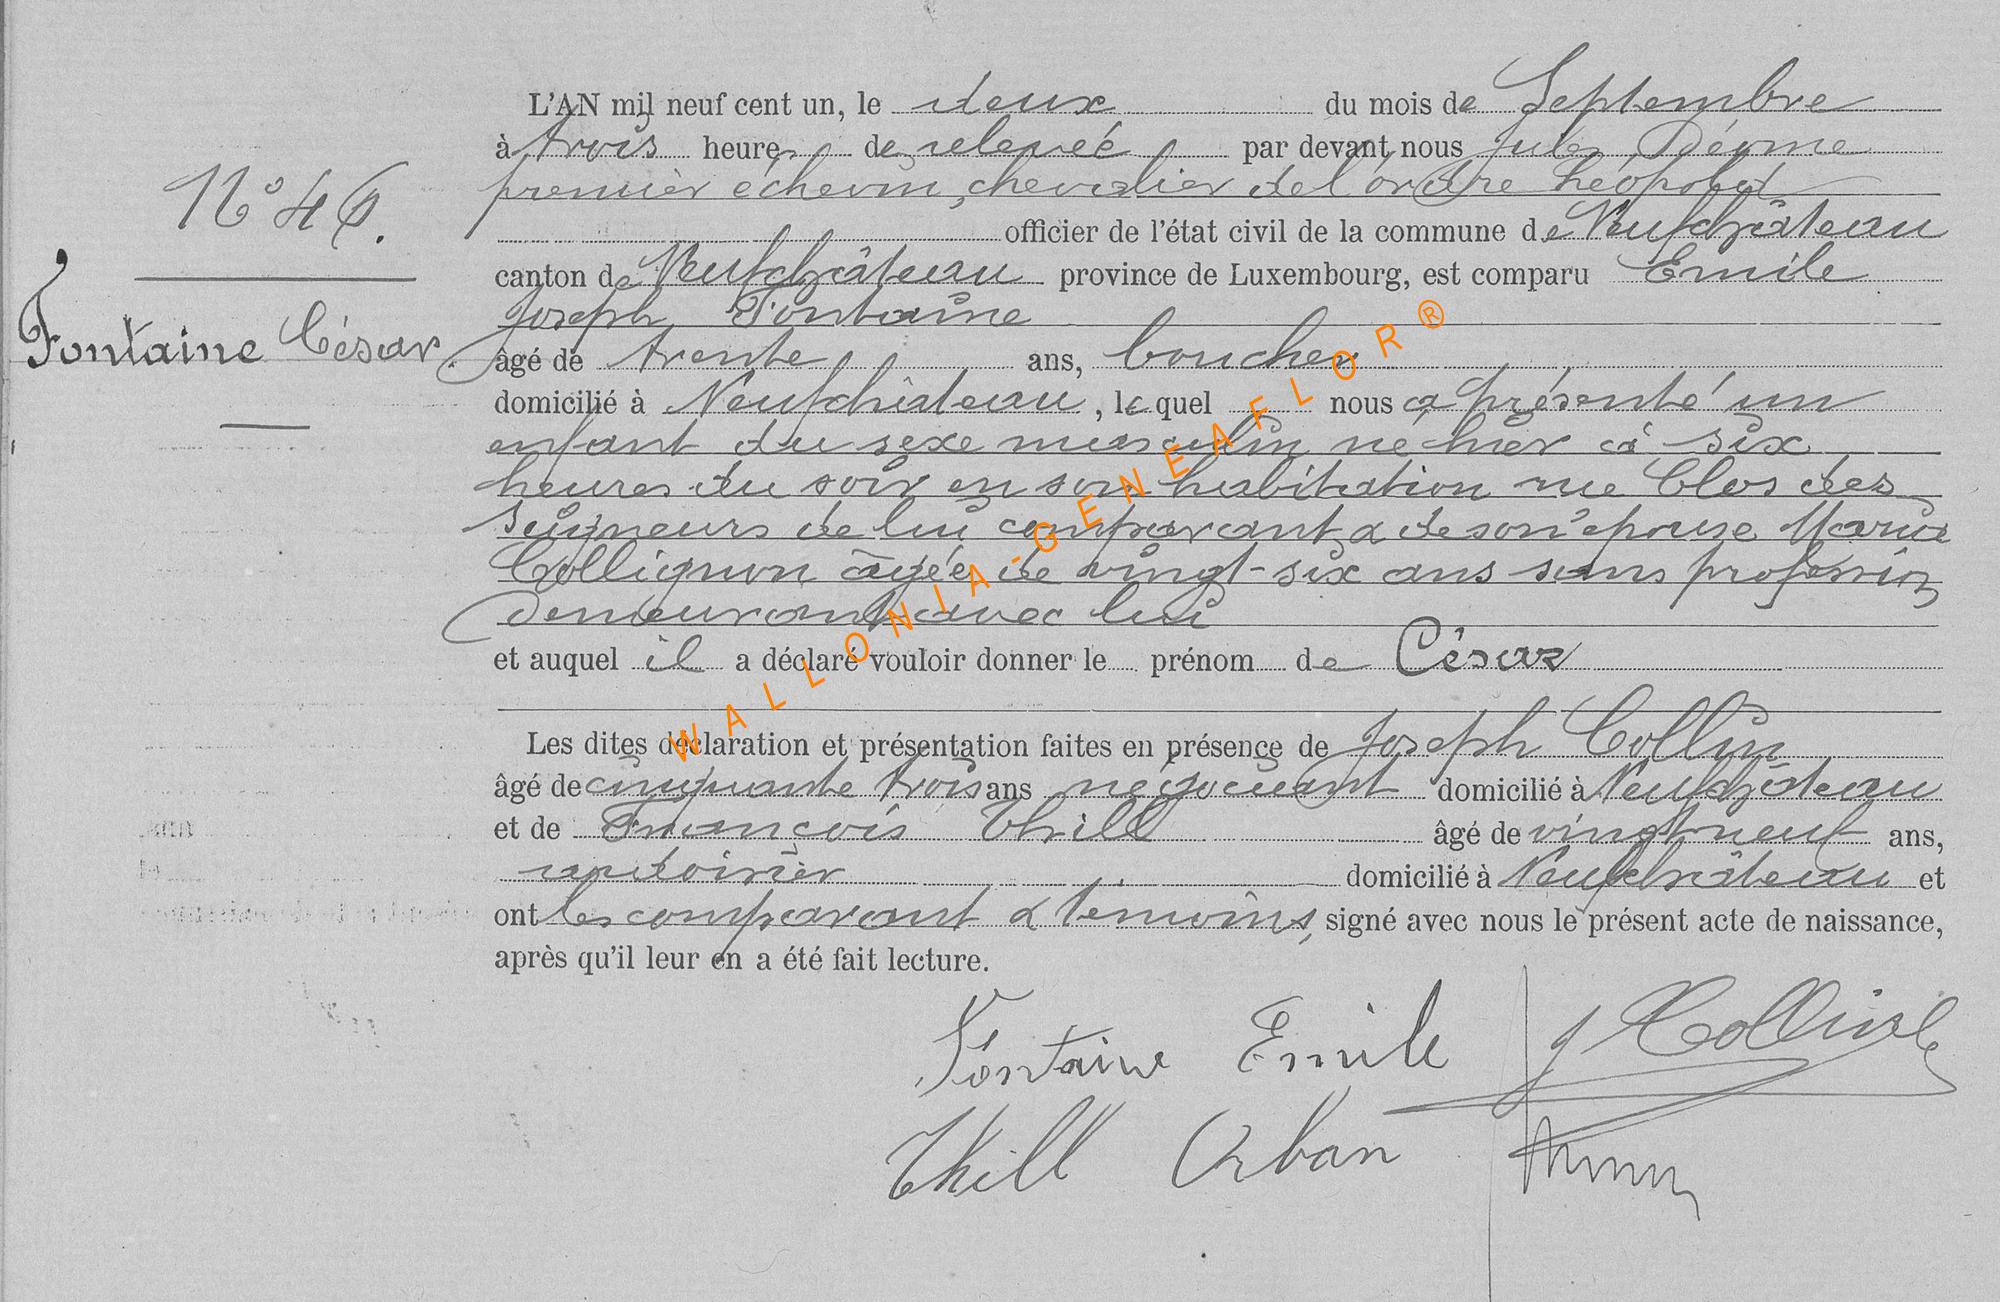 N° 46.
Fontaine César.
L'AN mil neuf cent un, le deux du mois de Septembre
à trois heure de relevée par devant nous Jules
premier échevin, chevalier de l'ordre Léopold
officier de l'état civil de la commune de Neufchâteau
canton de Neufchâteau province de Luxembourg, est comparu Emile
Joseph Fontaine
âgé de trente ans, boucher
domicilié à Neufchâteau, lequel nous a présenté un
enfant du sexe masculin né hier à six
heures du soir en son habitation rue Clos des
Seigneurs de lui comparant & de son épouse Maria
Collignon âgée de vingt-six ans sans profession
demeurant avec lui
et auquel il a déclaré vouloir donner le prénom de César
Les dites déclaration et présentation faites en présence de Joseph Collin
âgé de cinquante trois ans négociant domicilié à Neufchâteau
et de François Thill âgé de vingt neuf ans,
domicilié à Neufchâteau et
ont les comparant & témoins, signé avec nous le présent acte de naissance,
après qu'il leur en a été fait lecture.
Fontaine Emile J Collin
Thill Urban
WALLONIA-GENEAFLOR®